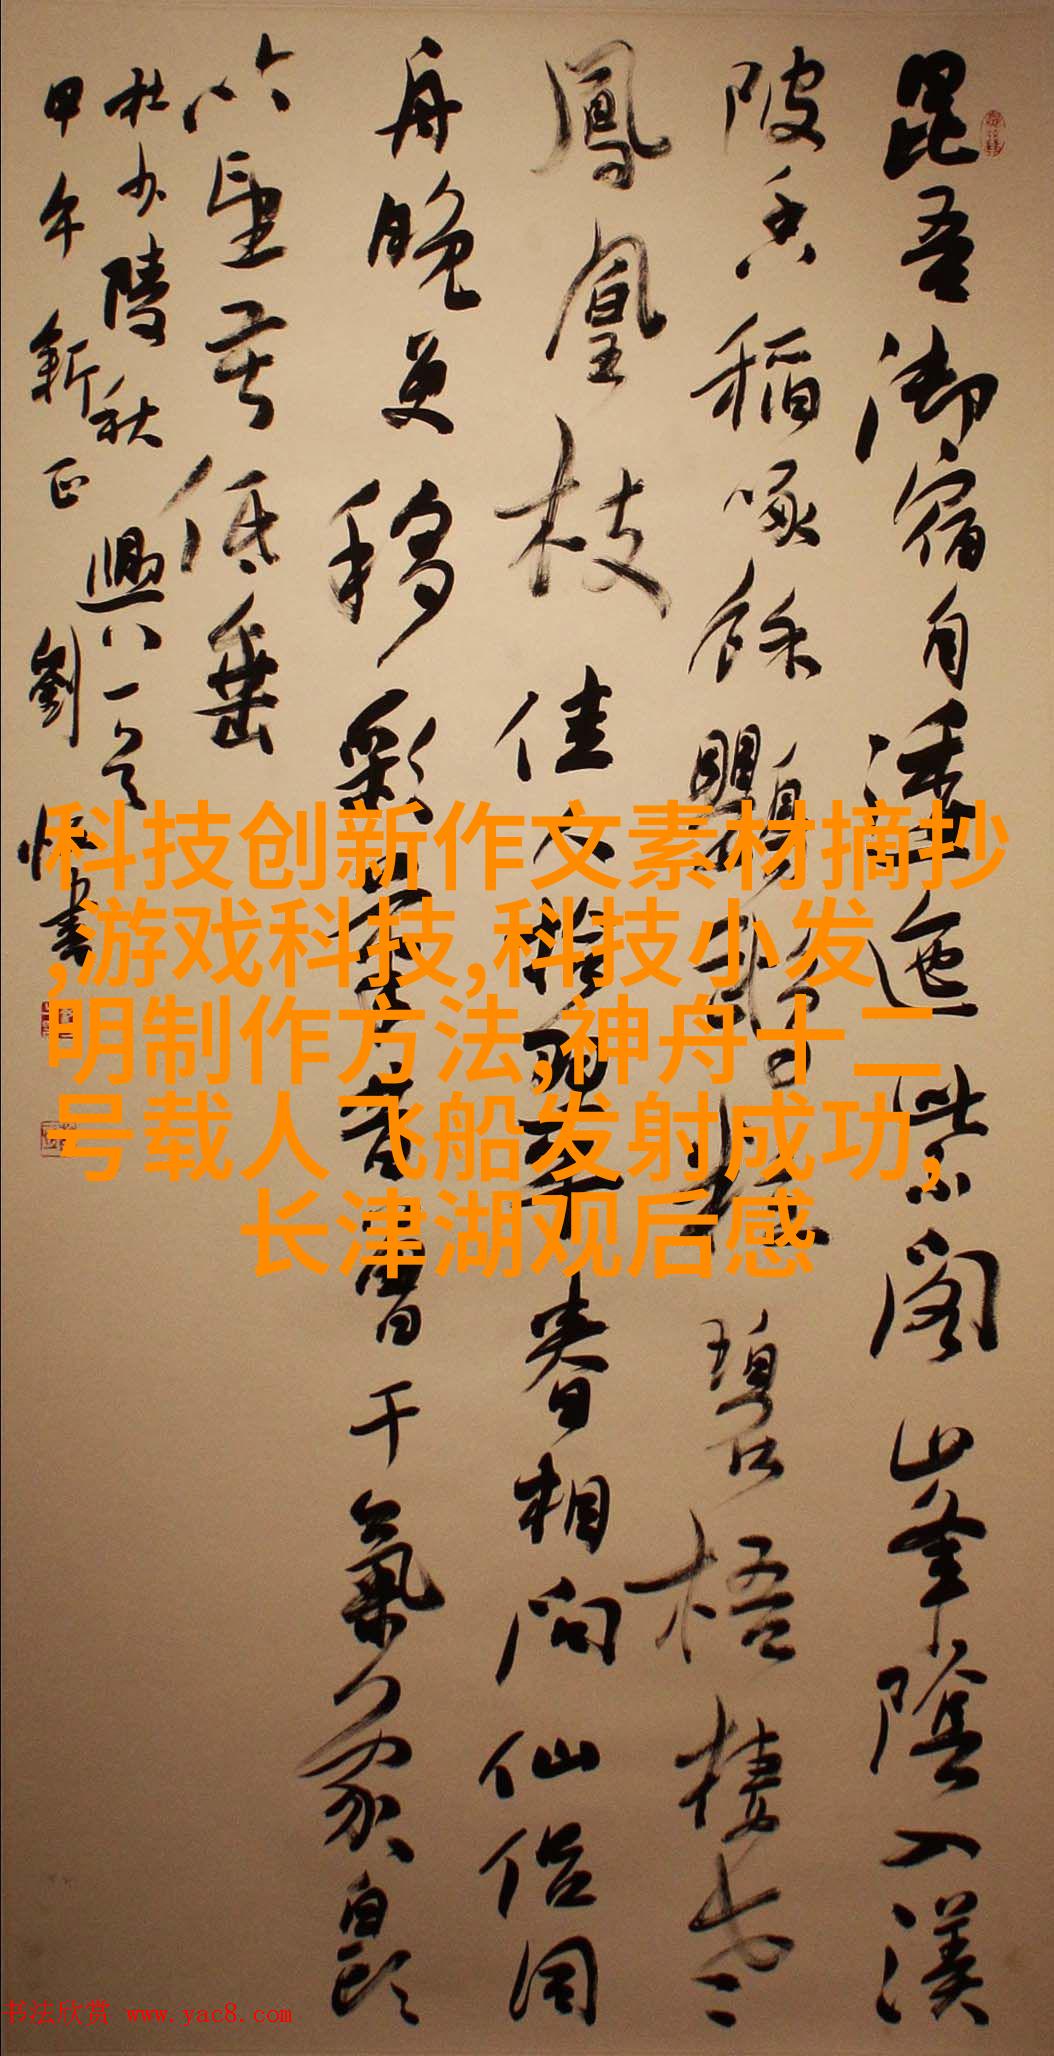 昆吾御宿自逶迤紫閣峯陰入渼
陂香稻啄餘鸚鵡粒碧梧棲老
鳳凰枝佳人拾翠春相問仙侶同
舟晚更移彩筆昔曾干氣象白頭
吟望苦低垂
杜少陵秋興八一首
甲午新正劉書
科技创新作文素材摘抄
,游戏科技,科技小发
明制作方法,神舟十二
号载人飞船发射成功,
长津湖观后感
书法欣赏 www.yac8.com